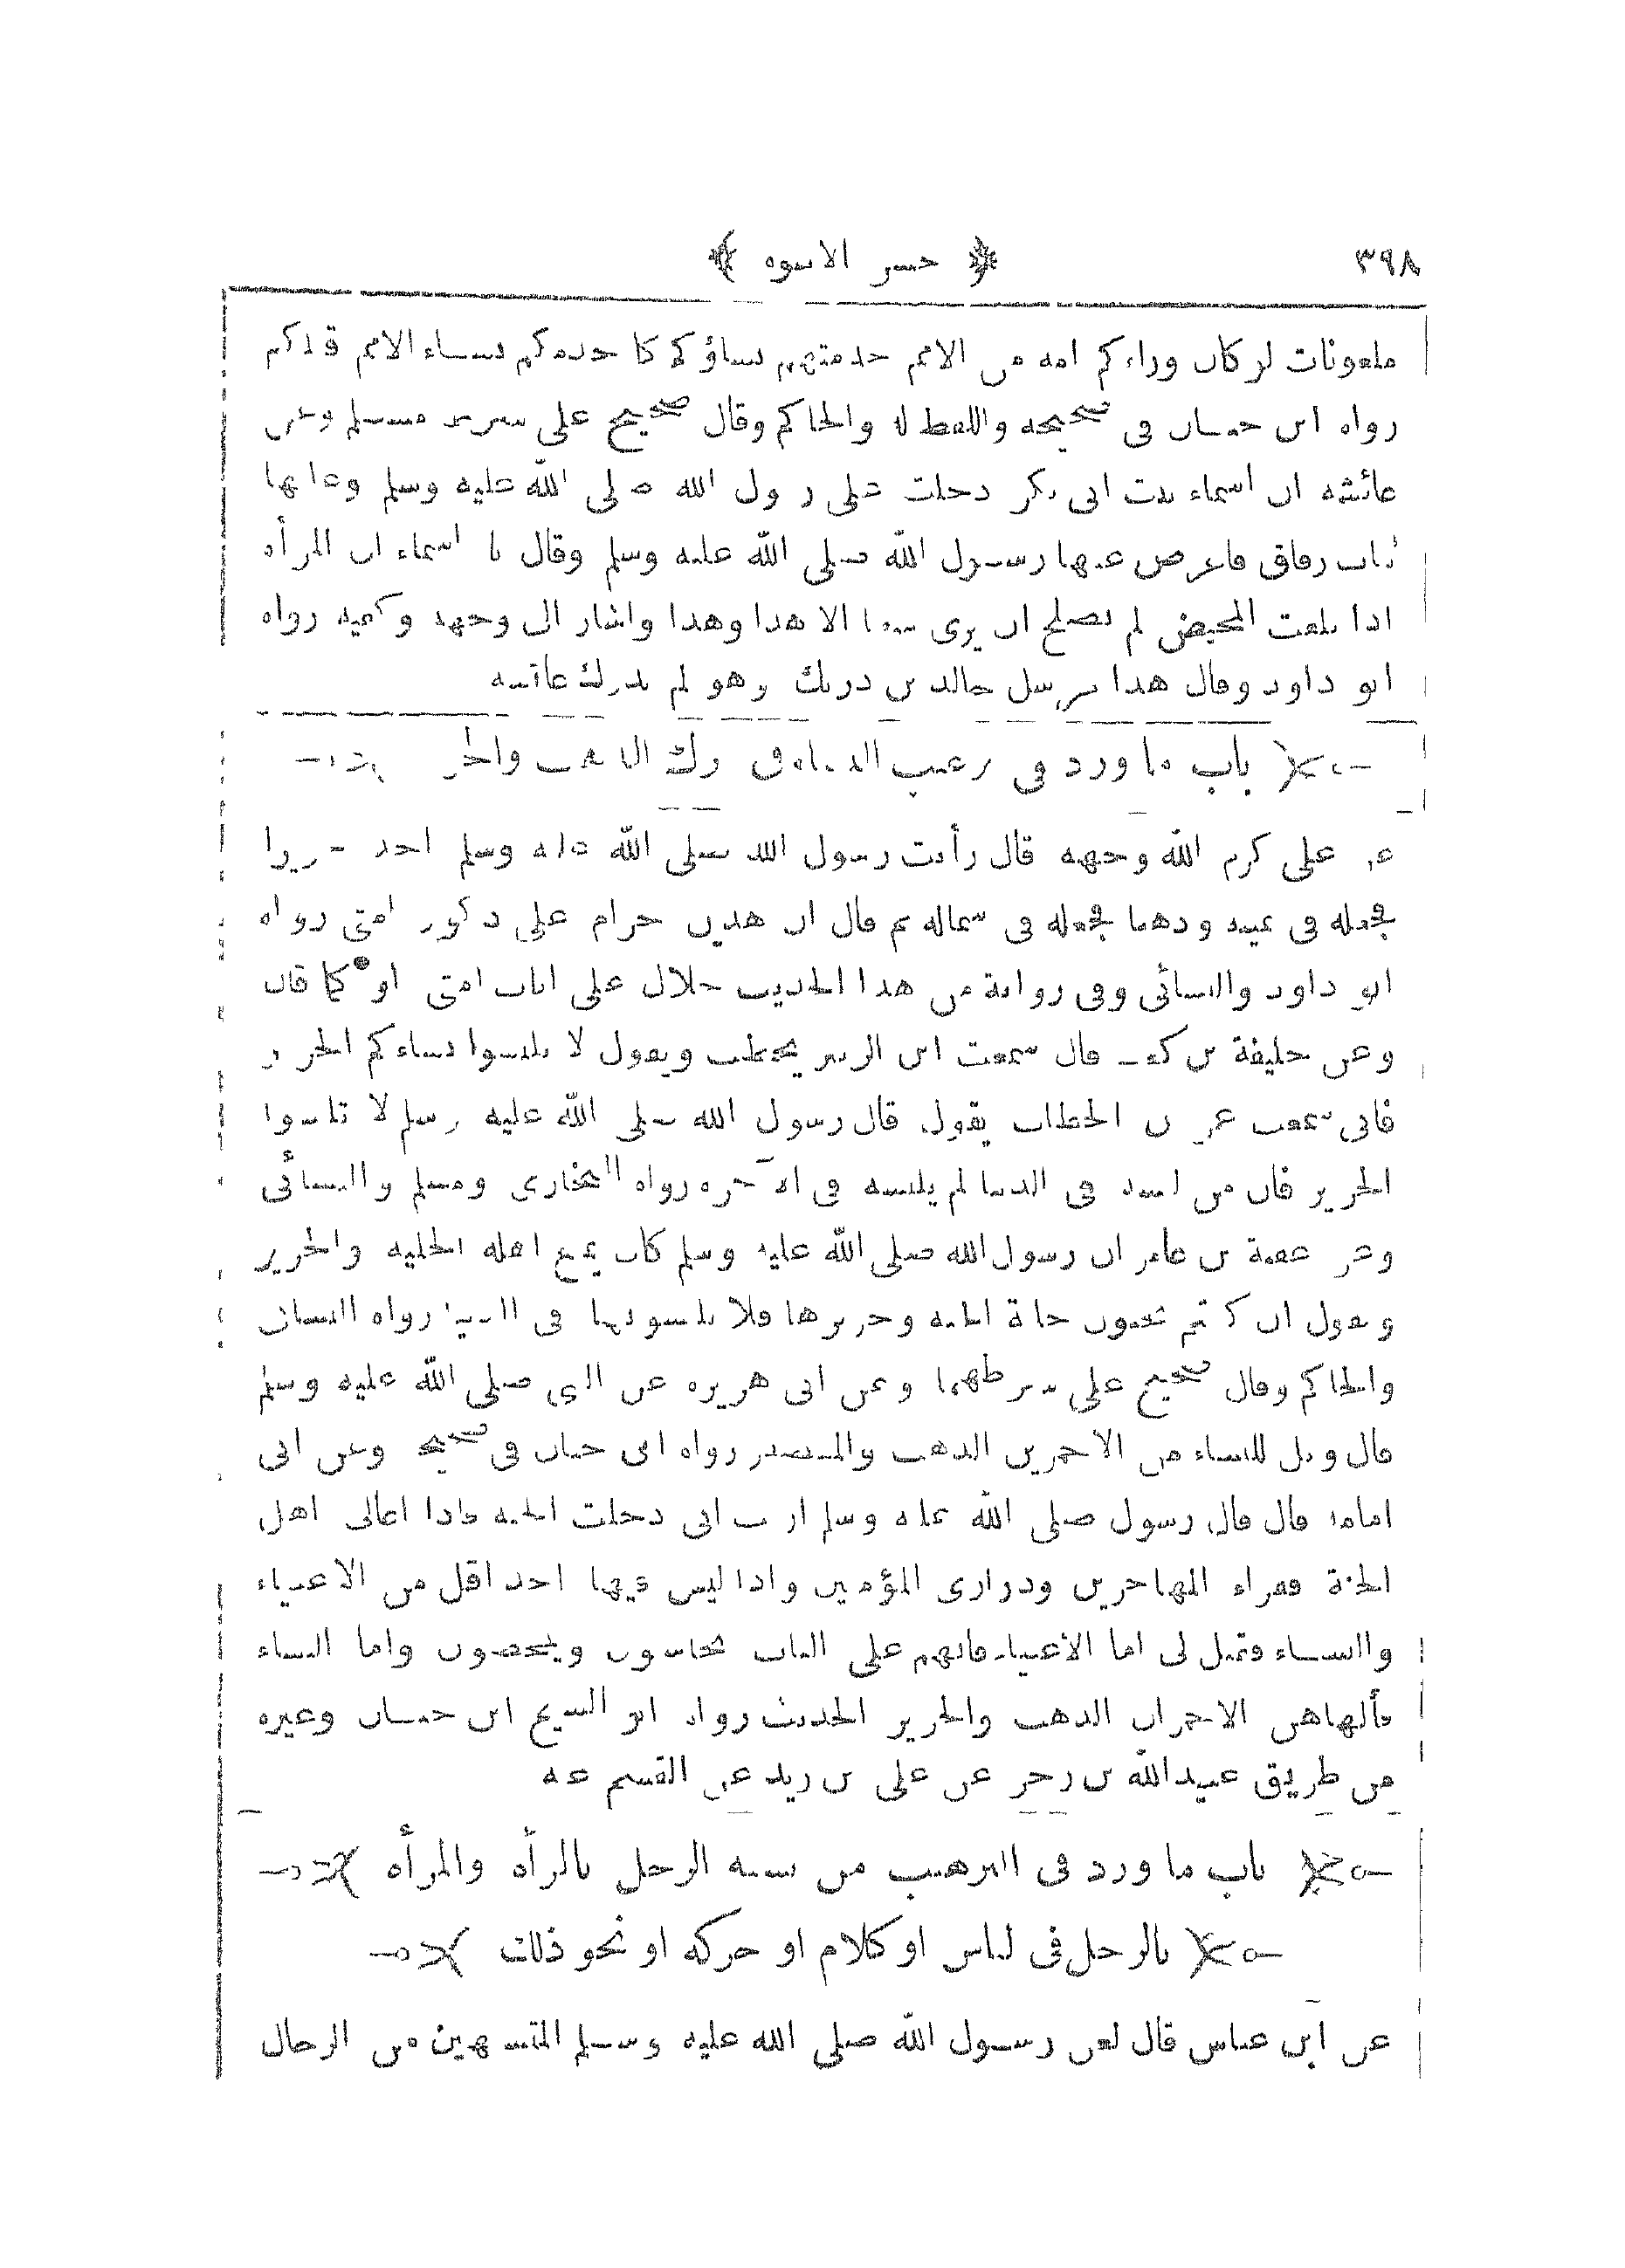 ٣٩٨ ﴿ حسن الاسوه ﴾
ملعونات لو كان وراءكم امة من الامم خدمتهم نساؤكم كما خدمكم نساء الامم قبلكم
رواه ابن حبان فى صحيحه واللفظ له والحاكم وقال صحيح على شرط مسلم وعن
عائشة ان اسماء بنت ابى بكر دخلت على رسول الله صلى الله عليه وسلم وعليها
ثياب رقاق فاعرض عنها رسول الله صلى الله عليه وسلم وقال يا اسماء ان المرأة
اذا بلغت المحيض لم يصلح ان يرى منها الا هذا وهذا واشار الى وجهه وكفيه رواه
ابو داود وقال هذا مرسل خالد بن دريك وهو لم يدرك عائشة
باب ما ورد فى ترغيب النساء فى ترك الذهب والحرير
عن على كرم الله وجهه قال رأيت رسول الله صلى الله عليه وسلم اخذ حريرا
فجعله فى يمينه وذهبا فجعله فى شماله ثم قال ان هذين حرام على ذكور امتى رواه
ابو داود والنسائى وفى رواية من هذا الحديث حلال على اناث امتى او كما قال
وعن خليفة بن كعب قال سمعت ابن الزبير يخطب ويقول لا تلبسوا نساءكم الحرير
فانى سمعت عمر بن الخطاب يقول قال رسول الله صلى الله عليه وسلم لا تلبسوا
الحرير فان من لبسه فى الدنيا لم يلبسه فى الآخرة رواه البخارى ومسلم والنسائى
وعن عقبة بن عامر ان رسول الله صلى الله عليه وسلم كان يمنع اهله الحلية والحرير
ويقول ان كنتم تحبون حلية الجنة وحريرها فلا تلبسونها فى الدنيا رواه النسائى
والحاكم وقال صحيح على شرطهما وعن ابى هريرة عن النبى صلى الله عليه وسلم
قال ويل للنساء من الاحمرين الذهب والمعصفر رواه ابن حبان فى صحيحه وعن ابى
امامة قال قال رسول صلى الله عليه وسلم اريت انى دخلت الجنة فاذا اعالى اهل
الجنة فقراء المهاجرين وذرارى المؤمنين واذا ليس فيها احد اقل من الاغنياء
والنساء فقيل لى اما الأغنياء فانهم على الباب يحاسبون ويمحصون واما النساء
فألهاهن الاحمران الذهب والحرير الحديث رواه ابو الشيخ ابن حبان وغيره
من طريق عبيد الله بن زحر عن على بن زيد عن القسم عنه
باب ما ورد فى الترهيب من تشبه الرجل بالمرأة والمرأة
بالرجل فى لباس او كلام او حركة او نحو ذلك
عن ابن عباس قال لعن رسول الله صلى الله عليه وسلم المتشبهين من الرجال